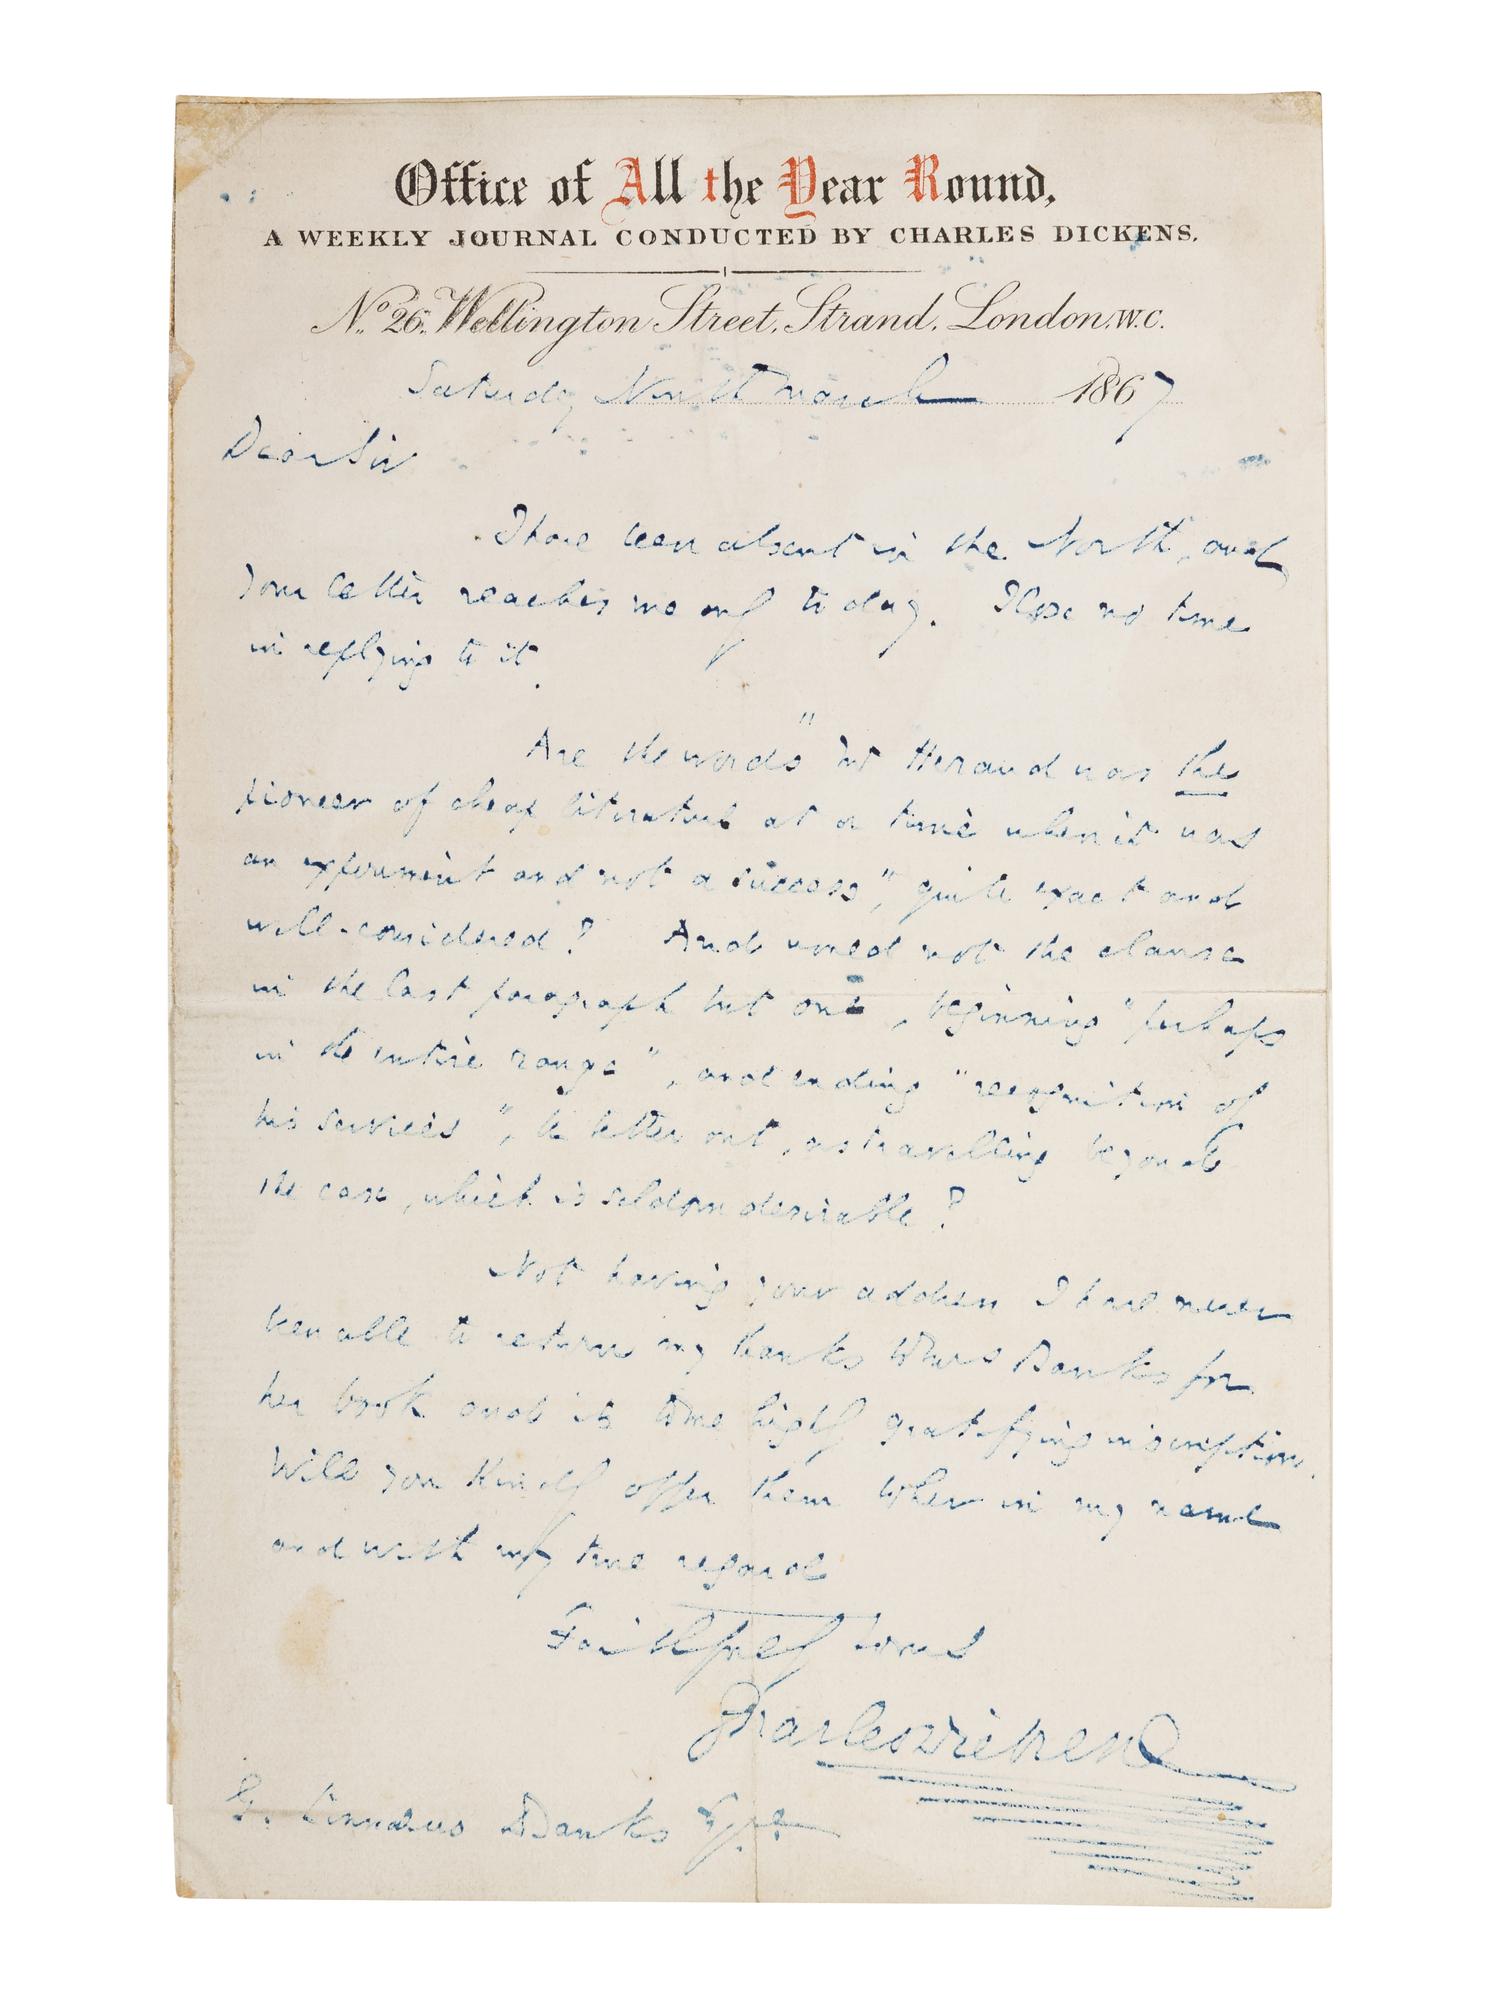 Office of All the Year Round,
A WEEKLY JOURNAL CONDUCTED BY CHARLES DICKENS.
No. 26, Wellington Street, Strand, London, W.C.
Saturday Ninth March 1867
Dear Sir
I have been absent in the North, and
your letter reaches me only to day. I lose no time
in replying to it.
Are the words "Mr Heraud was the
pioneer of cheap literature at a time when it was
an experiment and not a success", quite exact and
well-considered? And would not the clause
in the last paragraph but one, beginning "perhaps
in the entire range", and ending "recognition of
his services", be better out, as travelling beyond
the case, which is seldom desirable?
Not having your address I have never
been able to return my thanks to Mrs Banks for
her book and its to me highly gratifying inscription.
Will you kindly offer them to her in my name
and with my true regard
Faithfully Yours
Charles Dickens
G. Linnaeus Banks Esqre.